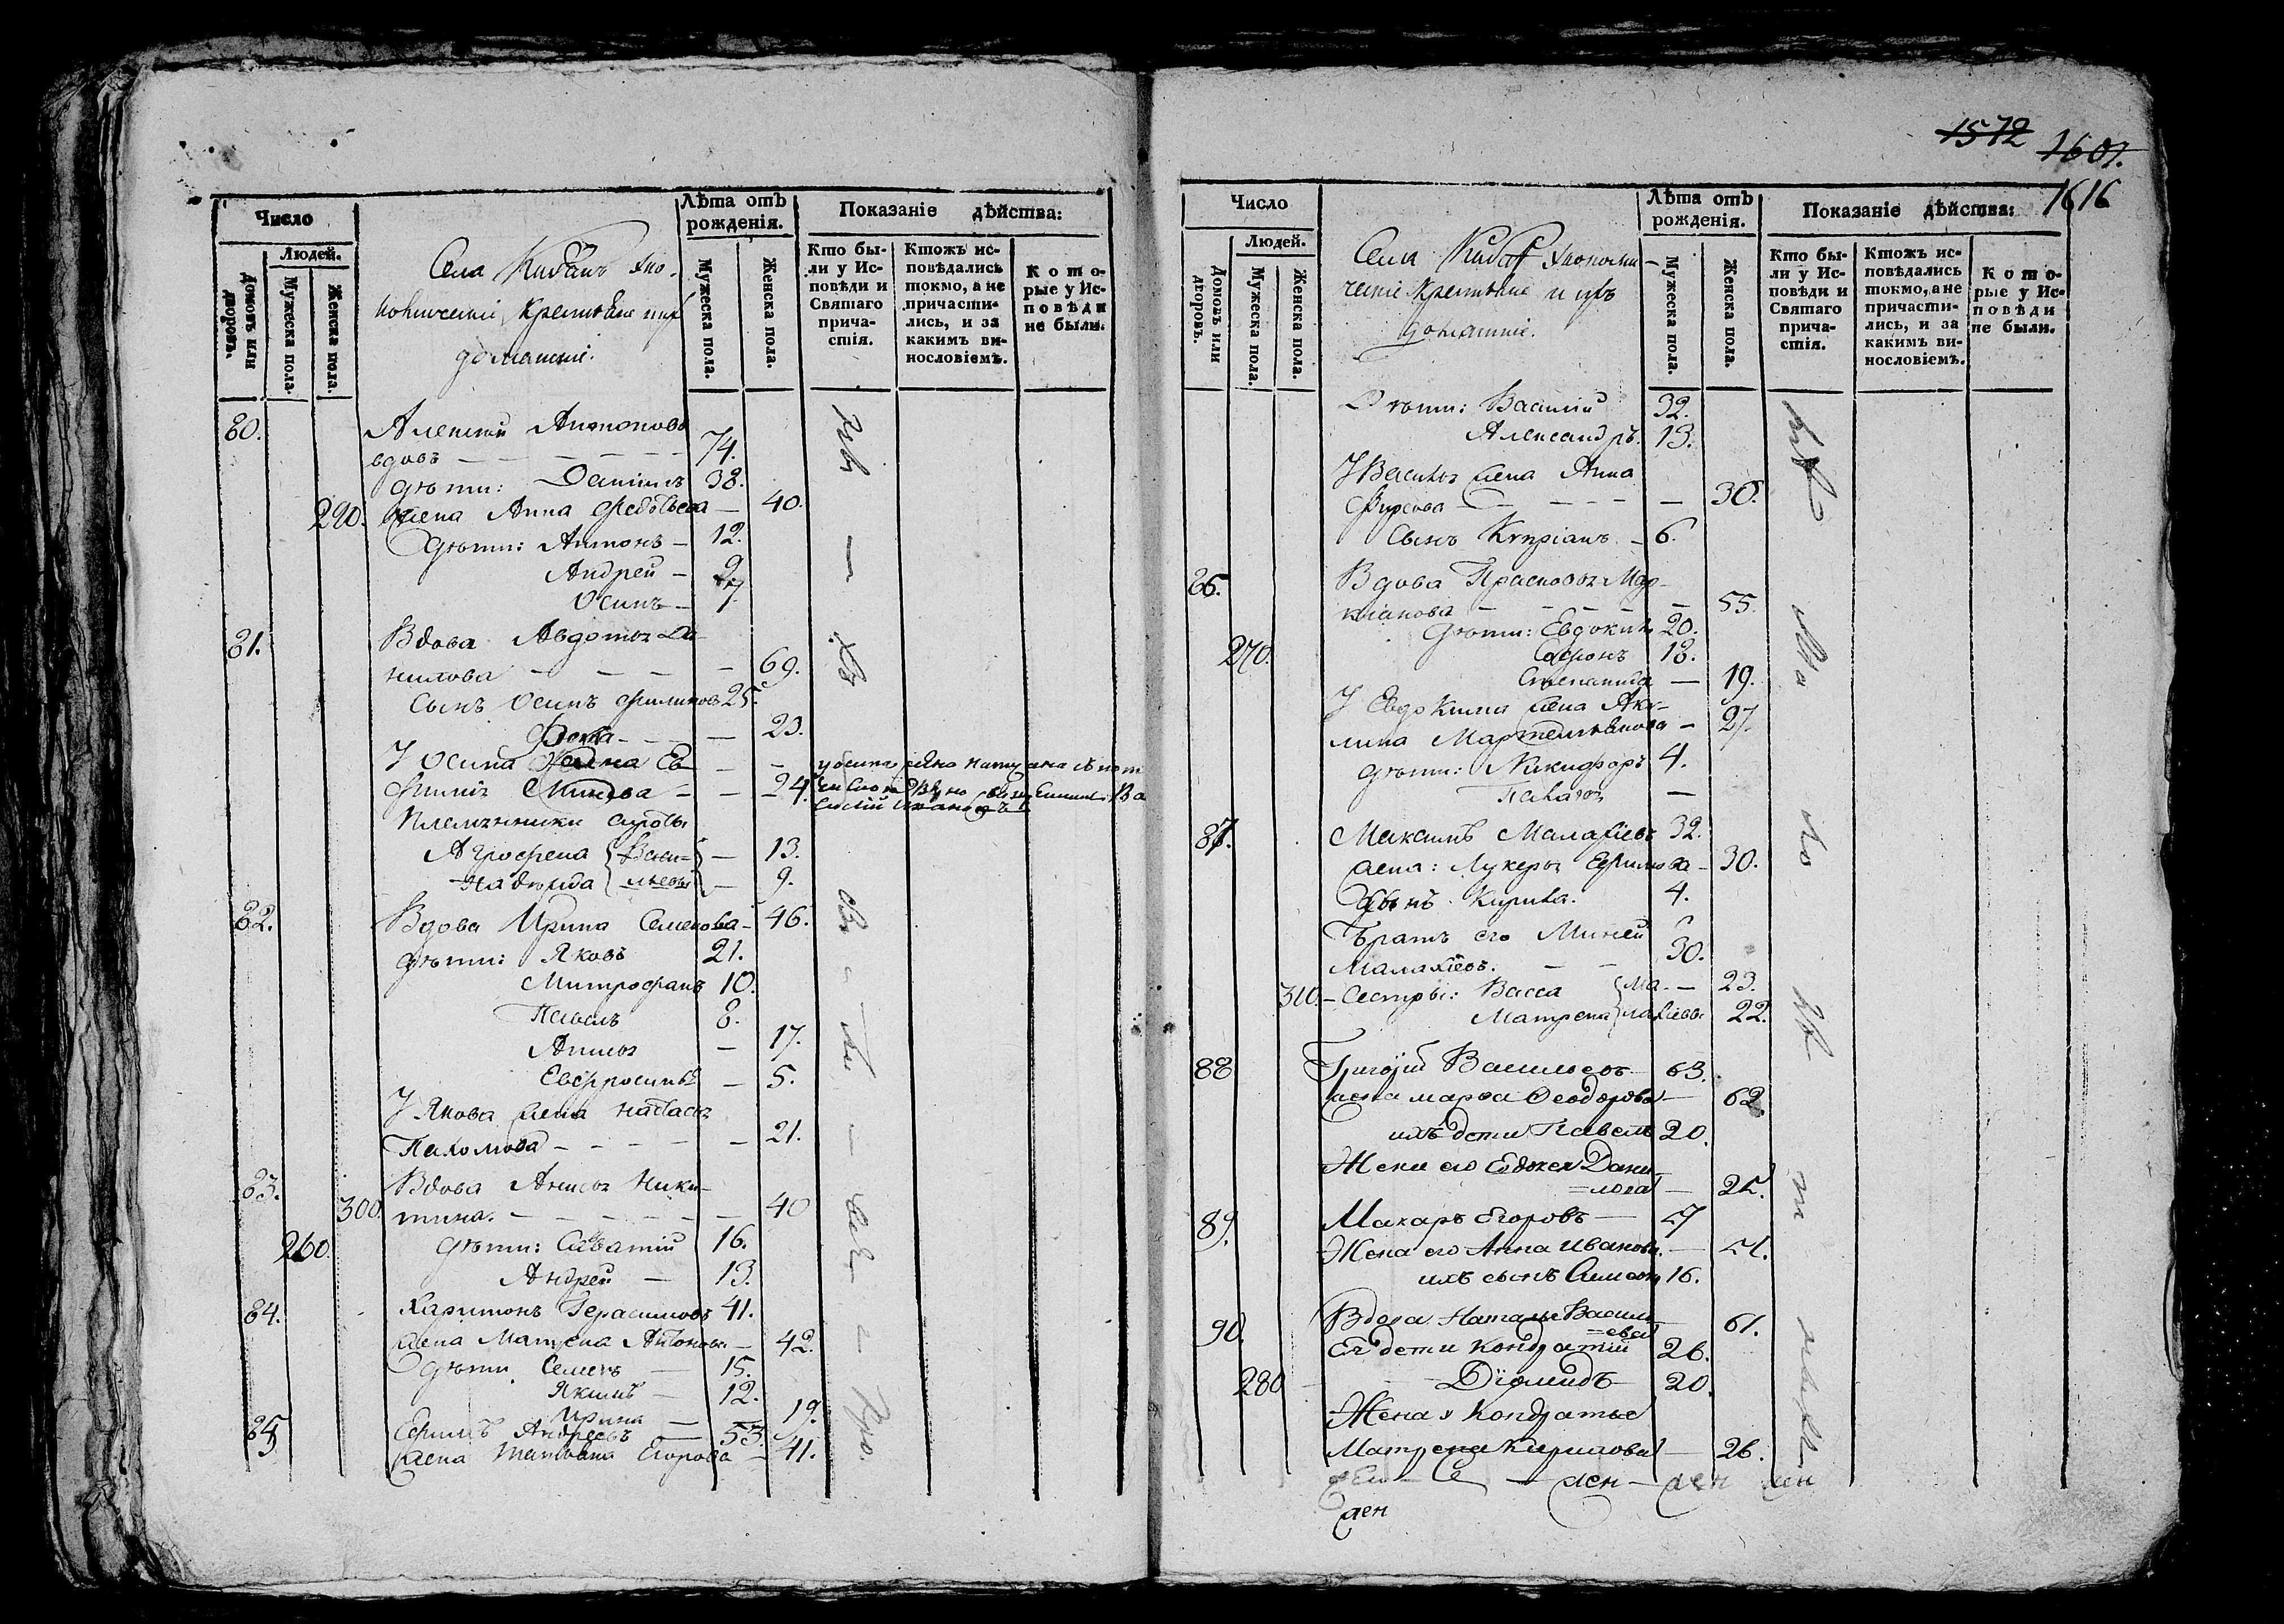 Число
Людей.
Домовъ или дворовъ.
Мужеска пола.
Женска пола.
Села
крестьяне
домашніе.
Лѣта отъ рожденія.
Мужеска пола.
Женска пола.
Показаніе дѣйства:
Кто бы-
ли у Ис-
повѣди и
Святаго
прича-
стія.
Ктожъ ис-
повѣдались
токмо, а не
причасти-
лись, и за
какимъ ви-
нословіемъ.
Кото-
рые у Ис-
повѣди
не были.
80. Алексѣй Антоновъ
вдовъ 74.
дѣти: Даніилъ 38.
290. жена Анна Федосѣева 40.
дѣти: Антонъ 12.
Андрей 9
Осипъ 7.
81. Вдова Авдотья Да-
нилова 69.
сынъ Осипъ Филиповъ 25.
Фекла 23.
У Осипа жена Ев-
фимія 24.
Племянники сироты
Агрофена Васи- 13.
Надежда льевы 9.
82. Вдова Ирина Семенова 46.
дѣти: Яковъ 21.
Митрофанъ 10.
Павелъ 8.
Анисья 17.
Евфросинья 5.
У Якова жена Настасья
Пахомова 21.
83. Вдова Анисья Ники-
300. тина. 40
260. дѣти: Савватій 16.
Андрей 13.
84. Харитонъ Герасимовъ 41.
жена Матрена Антонова 42.
дѣти Семенъ 15.
Якимъ 12.
Ирина 19.
85 Ефимъ Андреевъ 53.
жена Татьяна Егорова 41.
1572
1601.
1616
Число
Людей.
Домовъ или дворовъ.
Мужеска пола.
Женска пола.
Села
крестьяне и ихъ
домашніе.
Лѣта отъ рожденія.
Мужеска пола.
Женска пола.
Показаніе дѣйства:
Кто бы-
ли у Ис-
повѣди и
Святаго
прича-
стія.
Ктожъ ис-
повѣдались
токмо, а не
причасти-
лись, и за
какимъ ви-
нословіемъ.
Кото-
рые у Ис-
повѣди
не были.
Дѣти: Василій 32.
Александръ. 13.
У Василья жена Анна
Фирсова 30.
Сынъ Кѵпріанъ 6.
86. Вдова Прасковья Мар-
кианова 55.
дѣти: Евдокимъ 20.
270. Софонъ 18.
Степанида 19.
У Евдокима жена Аку-
лина 27.
дѣти: Никифоръ 4.
87. Максимъ Малахіевъ 32.
жена: Лукерья Ефимова 30.
Сынъ Кирила. 4.
Братъ его Миней
Малахіевъ. 30.
310. Сестры: Васса Ма- 23.
Матрена лахіевы 22.
88 Григорій Васильевъ 63.
жена Марѳа Ѳеодорова 62
ихъ дети Павелъ 20.
Жена его Евдокея Дани-
=лова 25.
89. Макаръ Егоровъ
Жена его Анна Иванова.
ихъ сынъ Симеонъ 16.
90. Вдова Наталья Василь
=ева 61.
Ея дети Кондратій 26.
280 Діомидъ 20.
Жена у Кондратья
Матрена Кирилова 26.
жен жен жен
жен